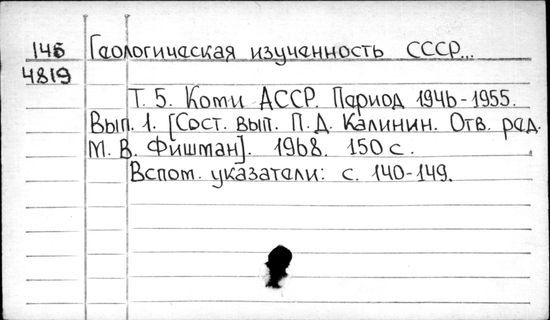 146 Геологическая изученность СССР...
4819
Т. 5. Коми АССР. Период 1946-1955.
Вып. 1. [Сост. вып. П. Д. Калинин. Отв. ред.
М. В. Фишман]. 1968. 150 с.
Вспом. указатели: с. 140-149.